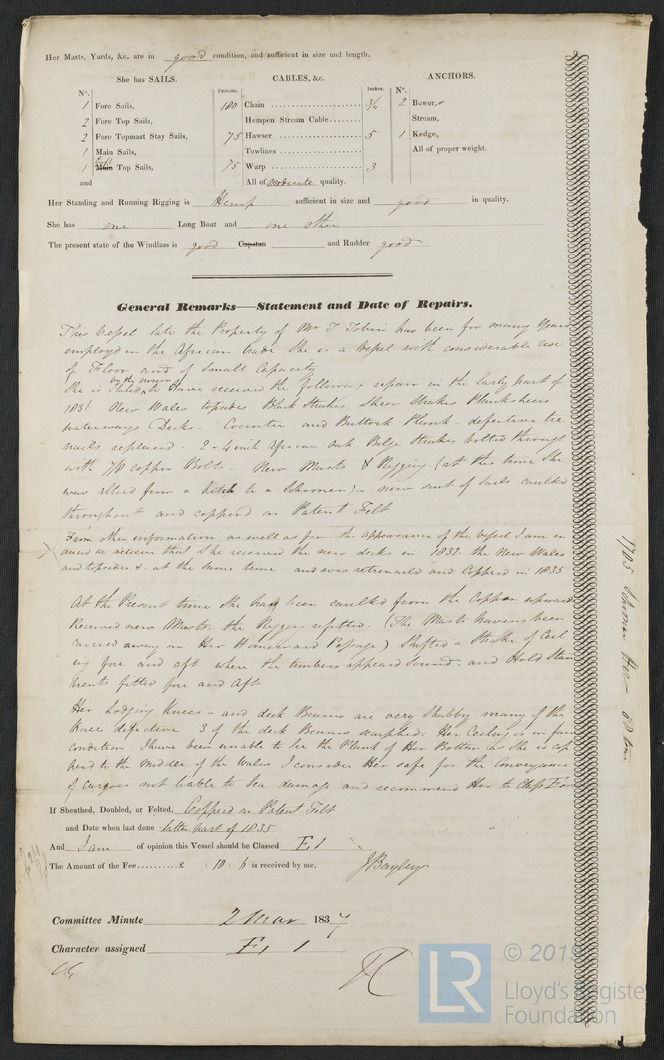 Her Masts, Yards, &c. are in good condition, and sufficient in size and length.
She has SAILS.
CABLES, &c.
ANCHORS.
Nº.
Fathoms.
Inches.
Nº.
1 Fore Sails,
180 Chain
3/4
2 Bower,
2 Fore Top Sails,
Hempen Stream Cable
Stream,
2 Fore Topmast Stay Sails,
75 Hawser
5
1 Kedge,
1 Main Sails,
Towlines
All of proper weight.
1 Gaff Main Top Sails,
75 Warp
3
and
All of moderate quality.
Her Standing and Running Rigging is Hemp sufficient in size and good in quality.
She has one Long Boat and one other
The present state of the Windlass is good Capstan and Rudder good
General Remarks—Statement and Date of Repairs.
This Vessel late the Property of Mr T Tobin has been for many Years
employd in the African trade She is a Vessel with considerable rise
of Floor and of Small Capacity
She is stated by the owner to have received the following repair in the early part of
1831 New Wales topsides Black Strakes Sheer Strakes Planksheers
waterways Decks. Counter and Buttock Plank. defective tre
nails replaced 2 - 4 inch African Oak Bilge Strakes bolted through
with 7/8 copper Bolts. New Masts & Rigging (at this time She
was alterd from a Ketch to a Schooner) - new suit of Sails caulked
throughout and copperd on Patent Felt
From other information as well as from the appearance of the vessel I am in
duced to believe that She received the new decks in 1832. the New Wales
and topsides &. at the same time and was retrenaild and Copperd in 1835
At the Present time She has been caulked from the Copper upwards
Received new Masts. the Rigging refitted. (The Masts having been
carried away on Her Homeward Passage) Shifted a Strake of Ceil
ing fore and aft where the timbers appeared Sound. and Hold Stan
tients fitted fore and Aft
Her Lodging Knees - and deck Beams are very Shabby. many of the
Knees defective 3 of the deck Beams scarphed. Her Ceiling is in fair
condition I have been unable to See the Plank of Her Bottom as She is cop
perd to the middle of the Wales I consider Her safe for the Conveyance
of Cargoes not liable to Sea damage and recommend Her to Class F
If Sheathed, Doubled, or Felted, Copperd on Patent Felt
and Date when last done latter part of 1835
And I am of opinion this Vessel should be Classed E 1
The Amount of the Fee..........£ : 10 : 6 is received by me, J Bayley
Committee Minute 2 Mar 1837
Character assigned E, 1
1705 Schooner
© 2019
LR Lloyd's Registe
Foundation